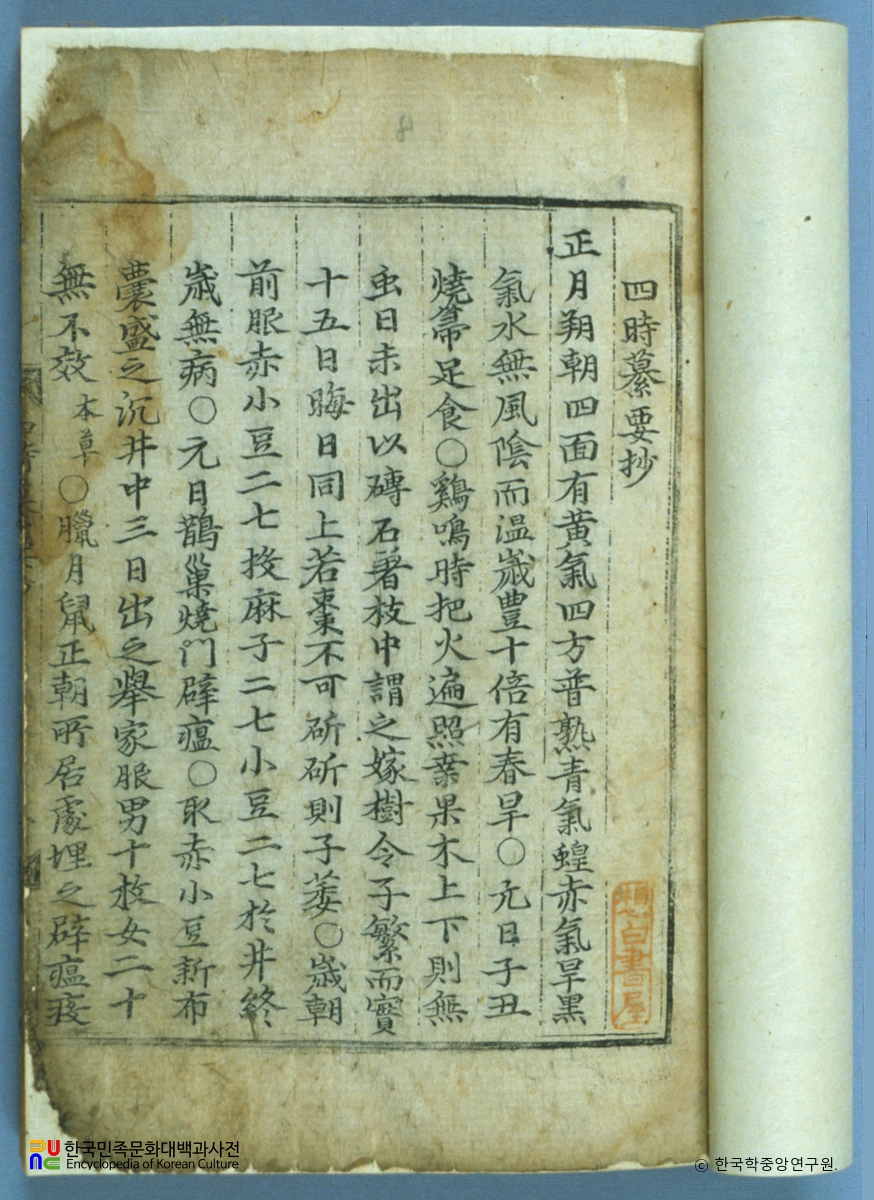 四時纂要抄
正月朔朝四面有黃氣四方普熟青氣蝗赤氣旱黑
氣水無風陰而溫歲豊十倍有春旱○元日子丑
燒篝足食○鷄鳴時把火遍照桒果木上下則無
虫日未出以磚石著枝中謂之嫁樹令子繁而實
十五日晦日同上若棗不可斫斫則子萎○歲朝
前服赤小豆二七投麻子二七小豆二七於井終
歲無病○元日鵲巢燒門辟瘟○取赤小豆新布
囊盛之沉井中三日出之擧家服男十枚女二十
無不效 本草○臘月鼠正朝所居處埋之辟瘟疫
書屋
한국민족문화대백과사전
Encyclopedia of Korean Culture
ⓒ 한국학중앙연구원.